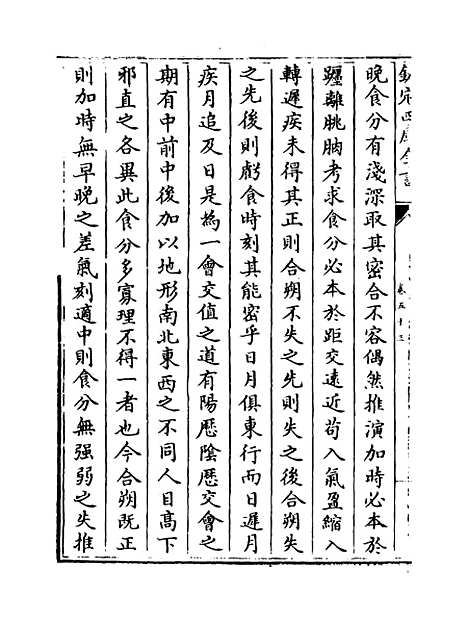 欽定四庫全書
卷五十三
晚食分有淺深取其密合不容偶然推演加時必本於
躔離朓朒考求食分必本於距交遠近苟入氣盈縮入
轉遲疾未得其正則合朔不失之先則失之後合朔失
之先後則虧食時刻其能密乎日月俱東行而日遲月
疾月追及日是為一會交值之道有陽歷陰歷交會之
期有中前中後加以地形南北東西之不同人目高下
邪直之各異此食分多寡理不得一者也今合朔既正
則加時無早晚之差氣刻適中則食分無强弱之失推